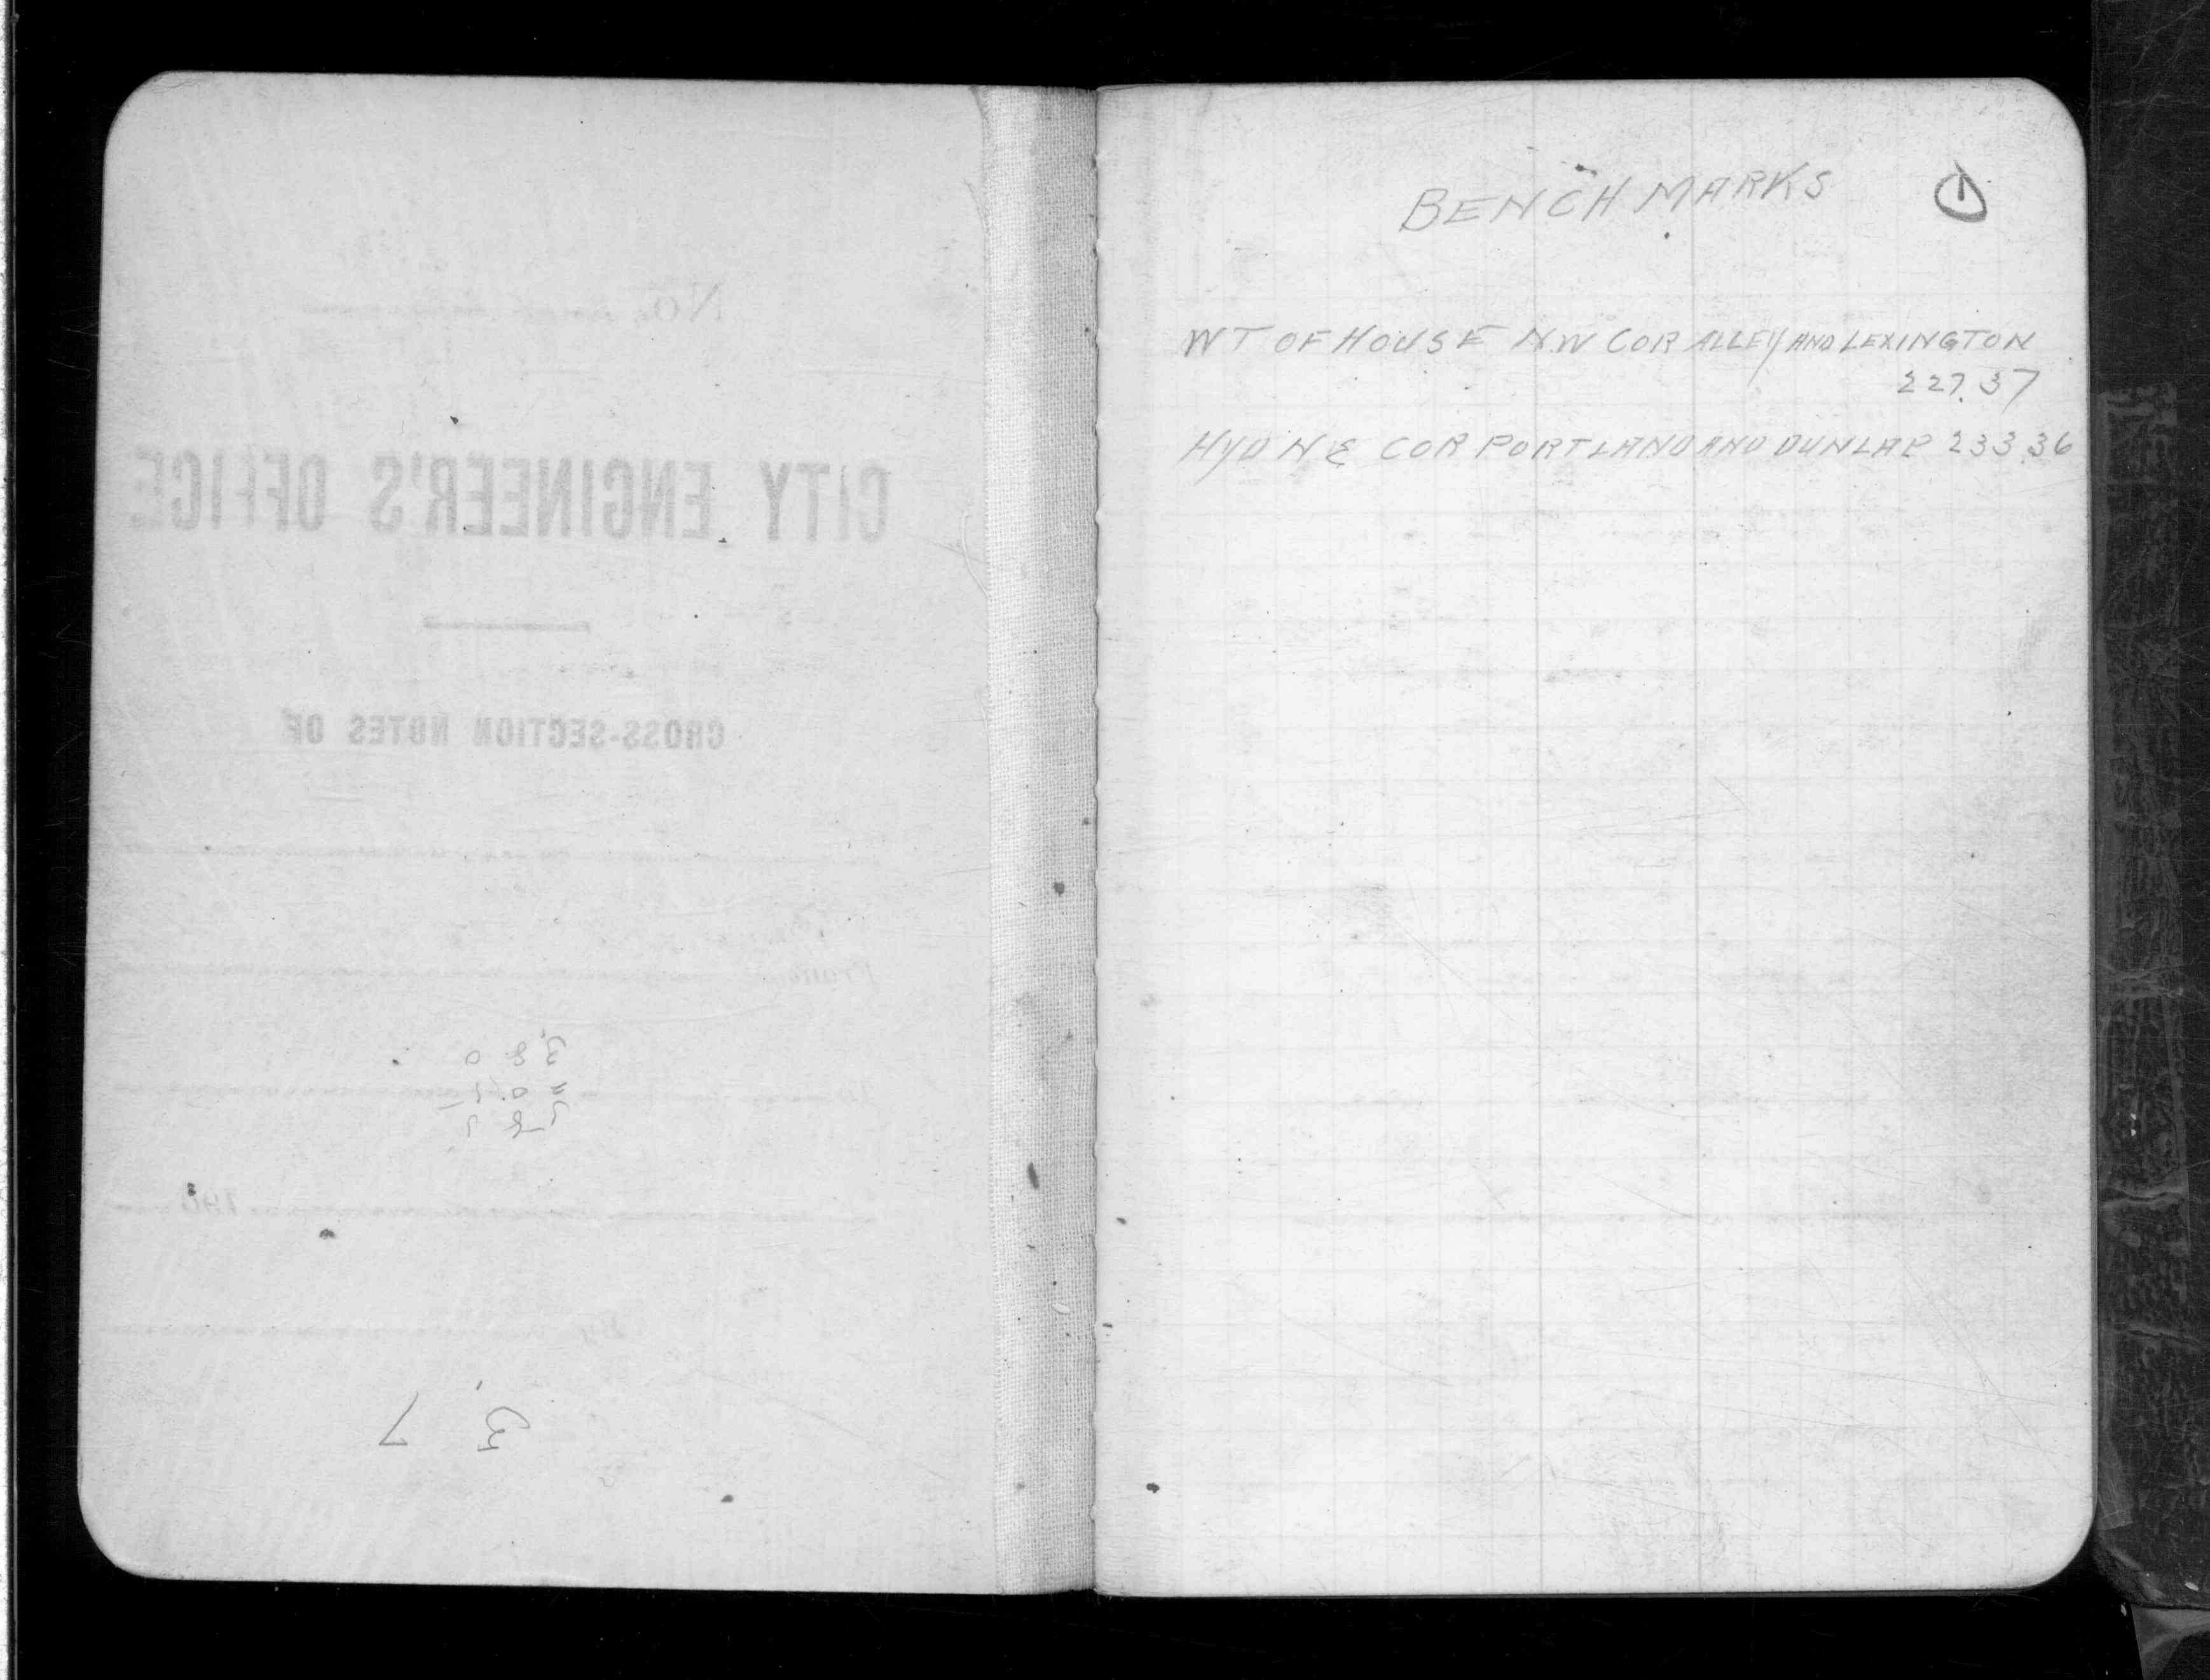 No.
CITY ENGINEER'S OFFICE
CROSS-SECTION NOTES OF
From
190
By
3 7
BENCH MARKS
1
WT OF HOUSE N.W COR ALLEY AND LEXINGTON
227.37
HYD N E COR PORTLAND AND DUNLAP 233.36